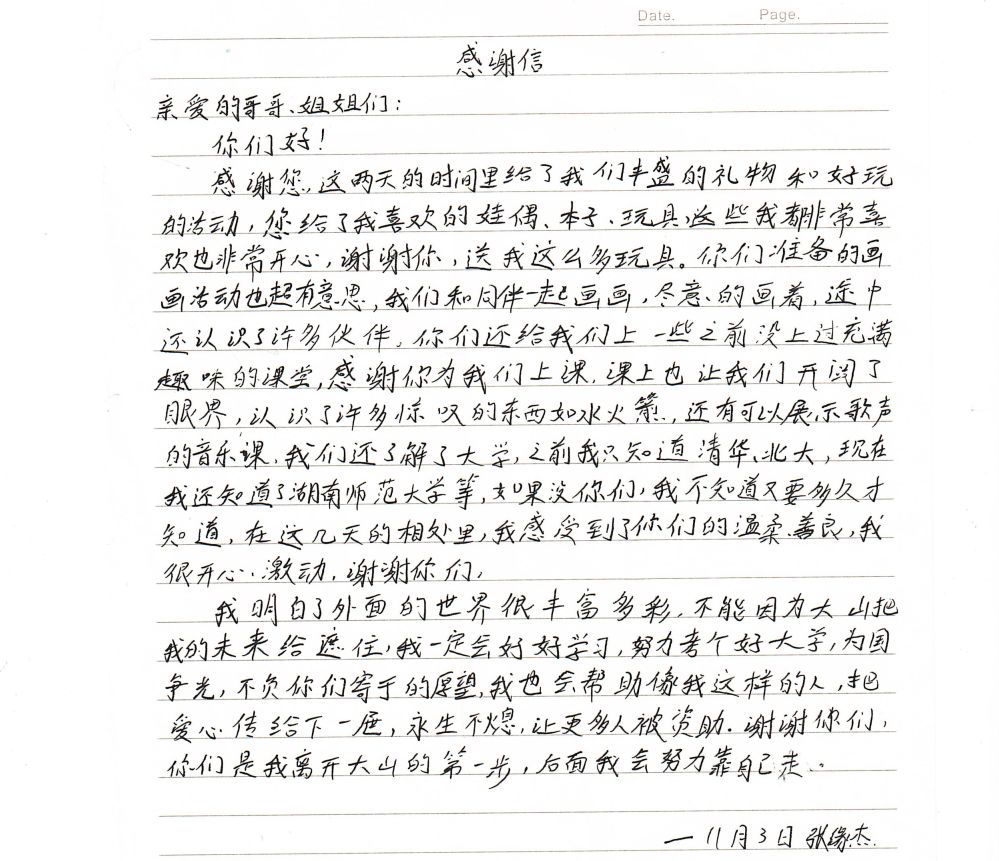 Date.  Page.
感谢信
亲爱的哥哥、姐姐们:
你们好!
感谢您,这两天的时间里给了我们丰盛的礼物和好玩
的活动,您给了我喜欢的娃偶、本子、玩具,这些我都非常喜
欢也非常开心,谢谢你,送我这么多玩具。你们准备的画
画活动也超有意思,我们和同伴一起画画,尽意的画着,途中
还认识了许多伙伴,你们还给我们上一些之前没上过充满
趣味的课堂,感谢你为我们上课,课上也让我们开阔了
眼界,认识了许多惊叹的东西如水火箭,还有可以展示歌声
的音乐课,我们还了解了大学,之前我只知道清华、北大,现在
我还知道了湖南师范大学等,如果没你们,我不知道又要多久才
知道,在这几天的相处里,我感受到了你们的温柔、善良,我
很开心、激动,谢谢你们,
我明白了外面的世界很丰富多彩,不能因为大山把
我的未来给遮住,我一定会好好学习,努力考个好大学,为国
争光,不负你们寄于的愿望,我也会帮助像我这样的人,把
爱心传给下一届,永生不熄,让更多人被资助.谢谢你们,
你们是我离开大山的第一步,后面我会努力靠自己走..
—11月3日 张缘杰.